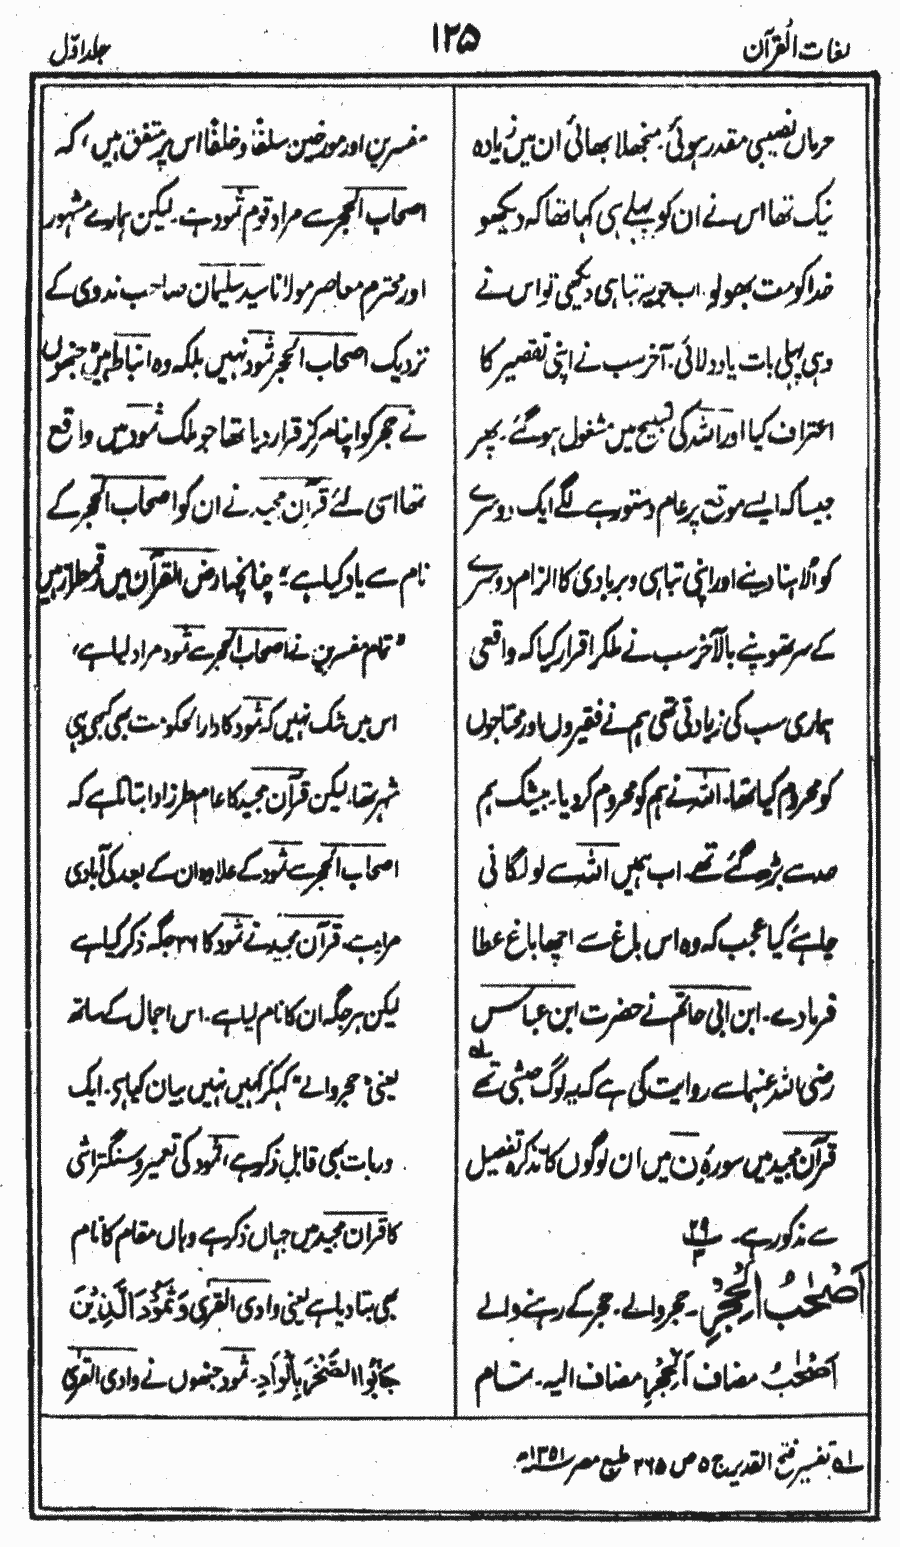 لغات القرآن
۱۲۵
جلد اوّل
حرماں نصیبی مقدر ہوئی۔ منجھلا بھائی ان میں زیادہ
نیک تھا اس نے ان کو پہلے ہی کہا تھا کہ دیکھو
خدا کو مت بھولو۔ اب جو یہ تباہی دیکھی تو اس نے
وہی پہلی بات یاد دلائی۔ آخر سب نے اپنی تقصیر کا
اعتراف کیا اور اللہ کی تسبیح میں مشغول ہو گئے۔ پھر
جیسا کہ ایسے موقع پر عام دستور ہے لگے ایک دوسرے
کو اُلاہنا دینے اور اپنی تباہی و بربادی کا الزام دوسرے
کے سر تھوپنے بالآخر سب نے ملکر اقرار کیا کہ واقعی
ہماری سب کی زیادتی تھی ہم نے فقیروں اور محتاجوں
کو محروم کیا تھا۔ اللہ نے ہم کو محروم کر دیا۔ بیشک ہم
حد سے بڑھ گئے تھے۔ اب ہمیں اللہ سے لو لگانی
چاہئے کیا عجب کہ وہ اس باغ سے اچھا باغ عطا
فرما دے۔ ابن ابی حاتم نے حضرت ابن عباس
رضی اللہ عنہما سے روایت کی ہے کہ یہ لوگ حبشی تھے لہ
قرآن مجید میں سورۂ ن میں ان لوگوں کا تذکرہ تفصیل
سے مذکور ہے۔ ۲۹ ۳
اَصْحٰبُ الْحِجْرِ۔ حجر والے۔ حجر کے رہنے والے
اَصْحٰبُ مضاف اَلْحِجْرِ مضاف الیہ۔ تمام
مفسرین اور مورخین سلفًا و خلفًا اس پر متفق ہیں، کہ
اصحاب الحجر سے مراد قوم ثمود ہے۔ لیکن ہمارے مشہور
اور محترم معاصر مولانا سید سلیمان صاحب ندوی کے
نزدیک اصحاب الحجر ثمود نہیں بلکہ وہ انباط ہیں جنھوں
نے حجر کو اپنا مرکز قرار دیا تھا جو ملک ثمود میں واقع
تھا اسی لئے قرآن مجید نے ان کو اصحاب الحجر کے
نام سے یاد کیا ہے" چنانچہ ارض القرآن میں رقمطراز ہیں
"تمام مفسرین نے اصحاب الحجر سے ثمود مراد لیا ہے،
اس میں شک نہیں کہ ثمود کا دار الحکومت بھی کبھی یہی
شہر تھا۔ لیکن قرآن مجید کا عام طرز ادا بتاتا ہے کہ
اصحاب الحجر سے ثمود کے علاوہ ان کے بعد کی آبادی
مراد ہے۔ قرآن مجید نے ثمود کا ۲۶ جگہ ذکر کیا ہے
لیکن ہر جگہ ان کا نام لیا ہے۔ اس اجمال کے ساتھ
یعنی "حجر والے" کہکر کہیں نہیں بیان کیا ہے۔ ایک
اور بات بھی قابل ذکر ہے، ثمود کی تعمیر و سنگتراشی
کا قرآن مجید میں جہاں ذکر ہے وہاں مقام کا نام
بھی بتا دیا ہے یعنی وادی القریٰ وَثَمُوْدَ الَّذِیْنَ
جَابُوا الصَّخْرَ بِالْوَادِ۔ ثمود جنھوں نے وادی القریٰ
لہ تفسیر فتح القدیر ج ۵ ص ۲۶۵ طبع مصر ۱۳۵۱ھ